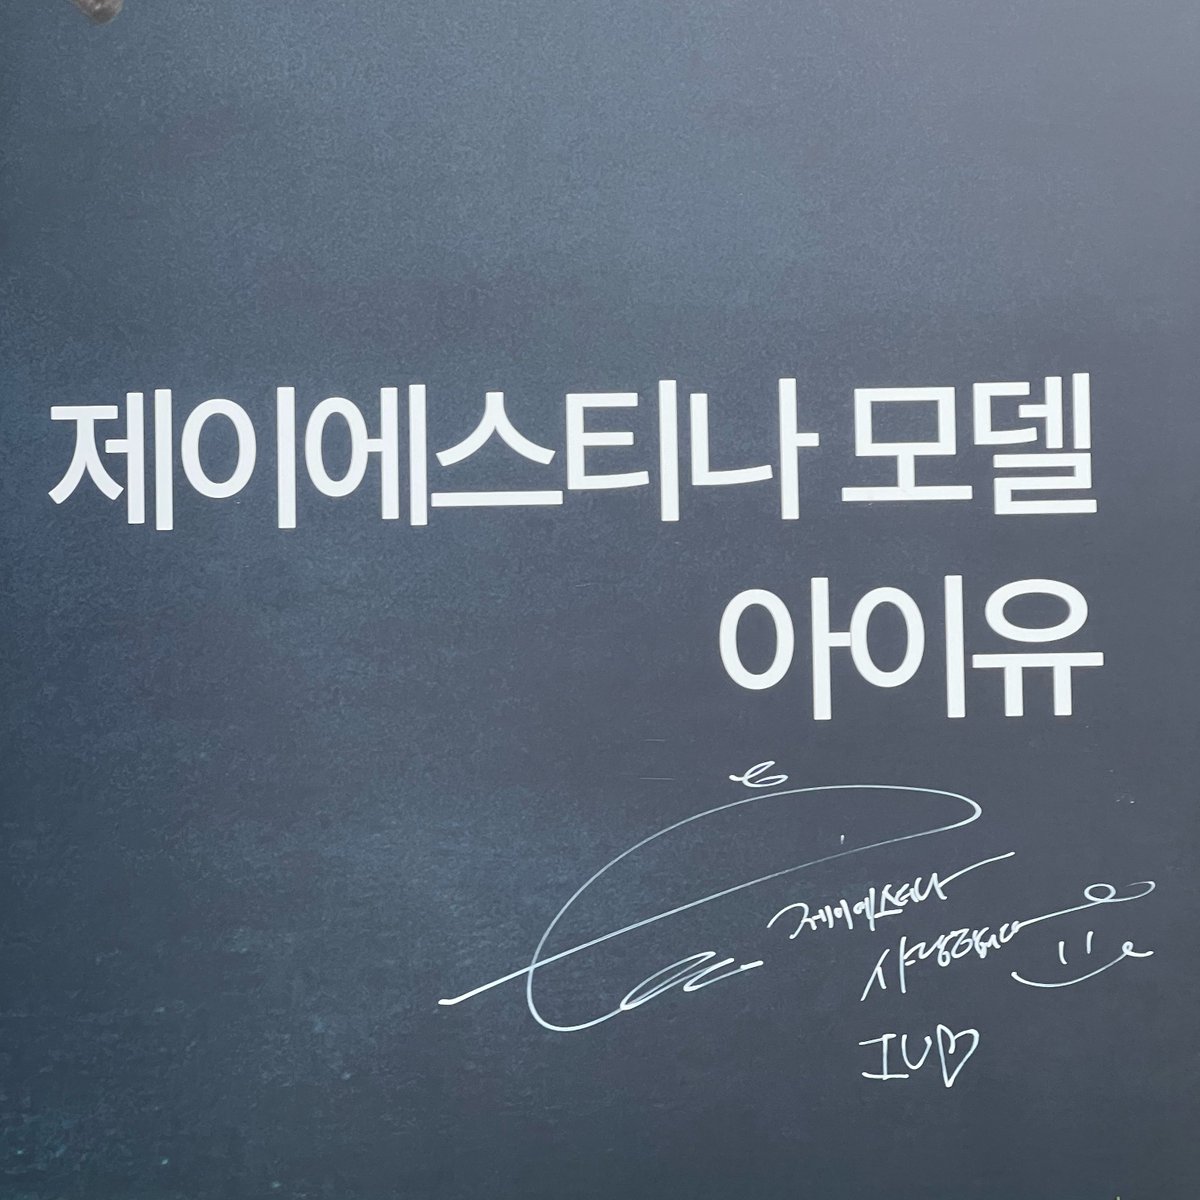 제이에스티나 모델
아이유
제이에스티나
사랑합니다
IU♡